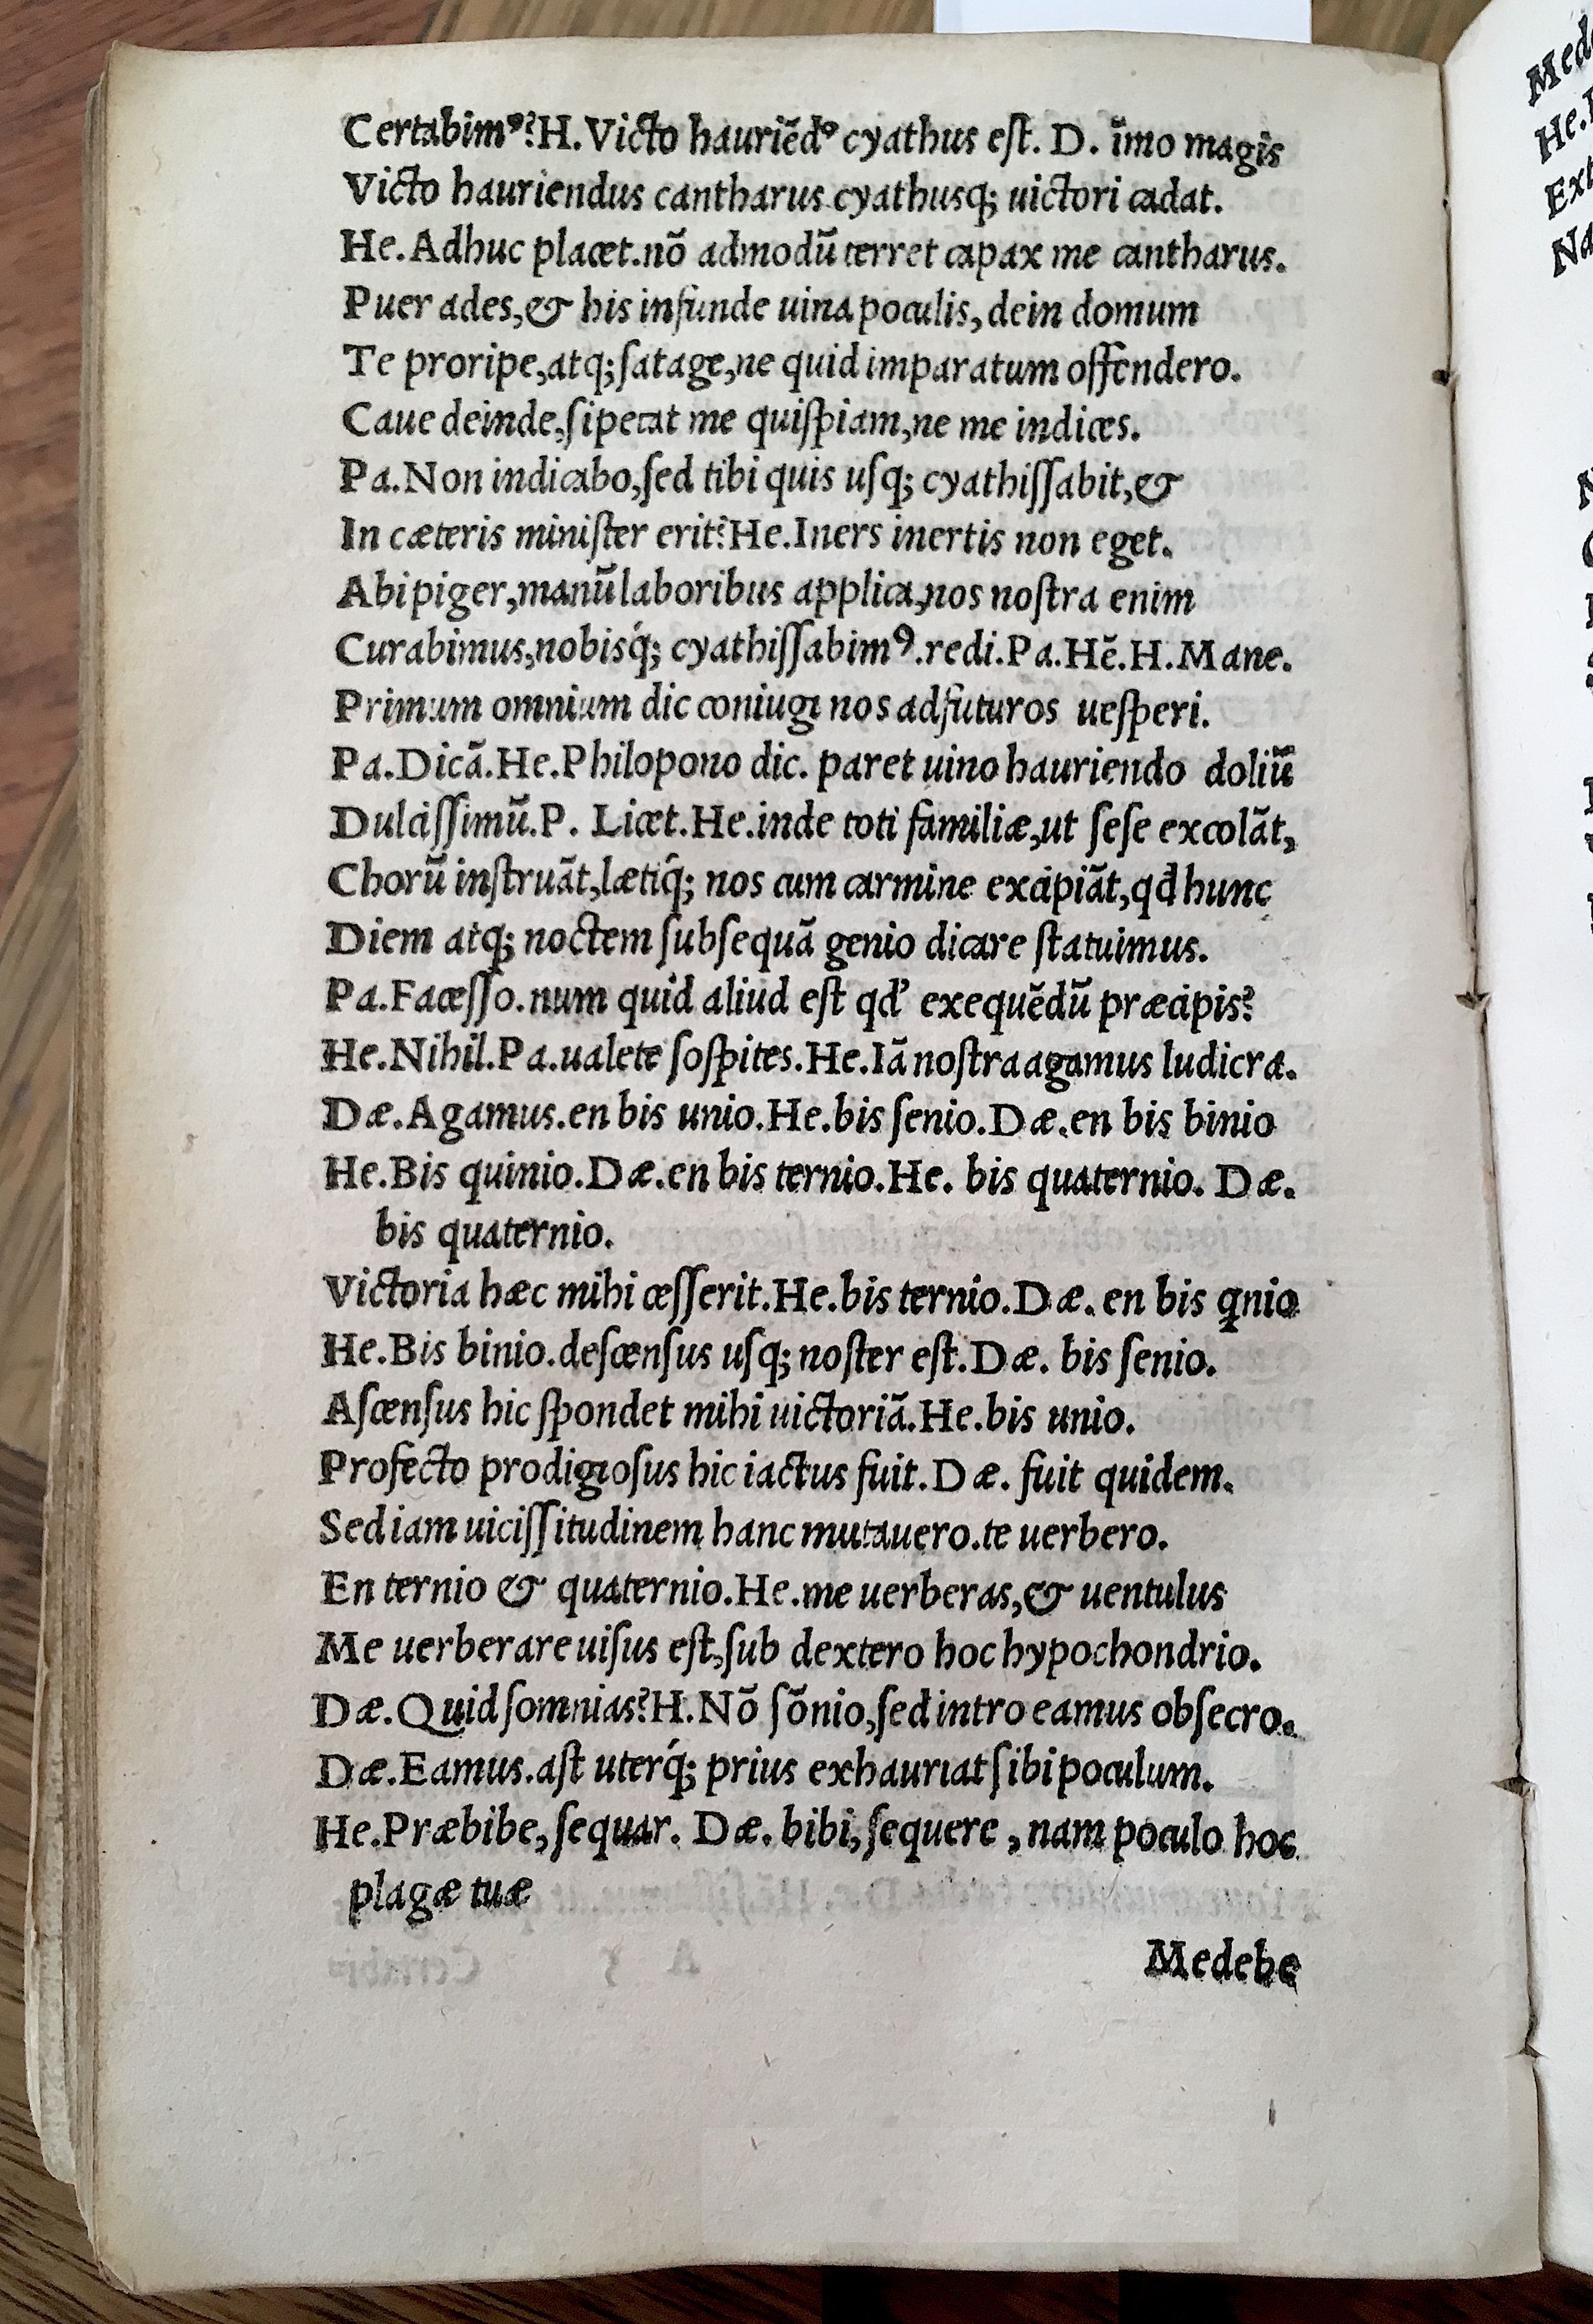 Certabimꝰ?H.Victo hauriẽdꝰ cyathus eſt. D. ĩmo magis
Victo hauriendus cantharus cyathusq; uictori cadat.
He.Adhuc placet.nõ admodũ terret capax me cantharus.
Puer ades,& his infunde uina poculis, dein domum
Te proripe,atq;ſatage,ne quid imparatum offendero.
Caue deinde,ſi petat me quiſpiam,ne me indices.
Pa.Non indicabo,ſed tibi quis uſq; cyathiſſabit,&
In cæteris miniſter erit?He.Iners inertis non eget.
Abi piger,manũ laboribus applica,nos noſtra enim
Curabimus,nobisq́; cyathiſſabimꝰ.redi.Pa.Hẽ.H.Mane.
Primum omnium dic coniugi nos adfuturos ueſperi.
Pa.Dicã.He.Philopono dic. paret uino hauriendo doliũ
Dulciſſimũ.P. Licet.He.inde toti familiæ,ut ſeſe excolãt,
Chorũ inſtruãt,lætiq́; nos cum carmine excipiãt,qd hunc
Diem atq; noctem ſubſequã genio dicare ſtatuimus.
Pa.Faceſſo.num quid aliud eſt qd' exequẽdũ præcipis?
He.Nihil.Pa.ualete ſoſpites.He.Iã noſtra agamus ludicra.
Dæ.Agamus.en bis unio.He.bis ſenio.Dæ.en bis binio
He.Bis quinio.Dæ.en bis ternio.He. bis quaternio. Dæ.
bis quaternio.
Victoria hæc mihi ceſſerit.He.bis ternio.Dæ. en bis qnio
He.Bis binio.deſcenſus uſq; noſter eſt.Dæ. bis ſenio.
Aſcenſus hic ſpondet mihi uictoriã.He.bis unio.
Profecto prodigioſus hic iactus fuit.Dæ. fuit quidem.
Sed iam uiciſſitudinem hanc mutauero.te uerbero.
En ternio & quaternio.He.me uerberas,& uentulus
Me uerberare uiſus eſt,ſub dextero hoc hypochondrio.
Dæ.Quid ſomnias?H.Nõ ſõnio,ſed intro eamus obſecro.
Dæ.Eamus.aſt uterq́; prius exhauriat ſibi poculum.
He.Præbibe, ſequar. Dæ. bibi, ſequere , nam poculo hoc
plagæ tuæ
Medebe
Mede
He.
Ext
Na